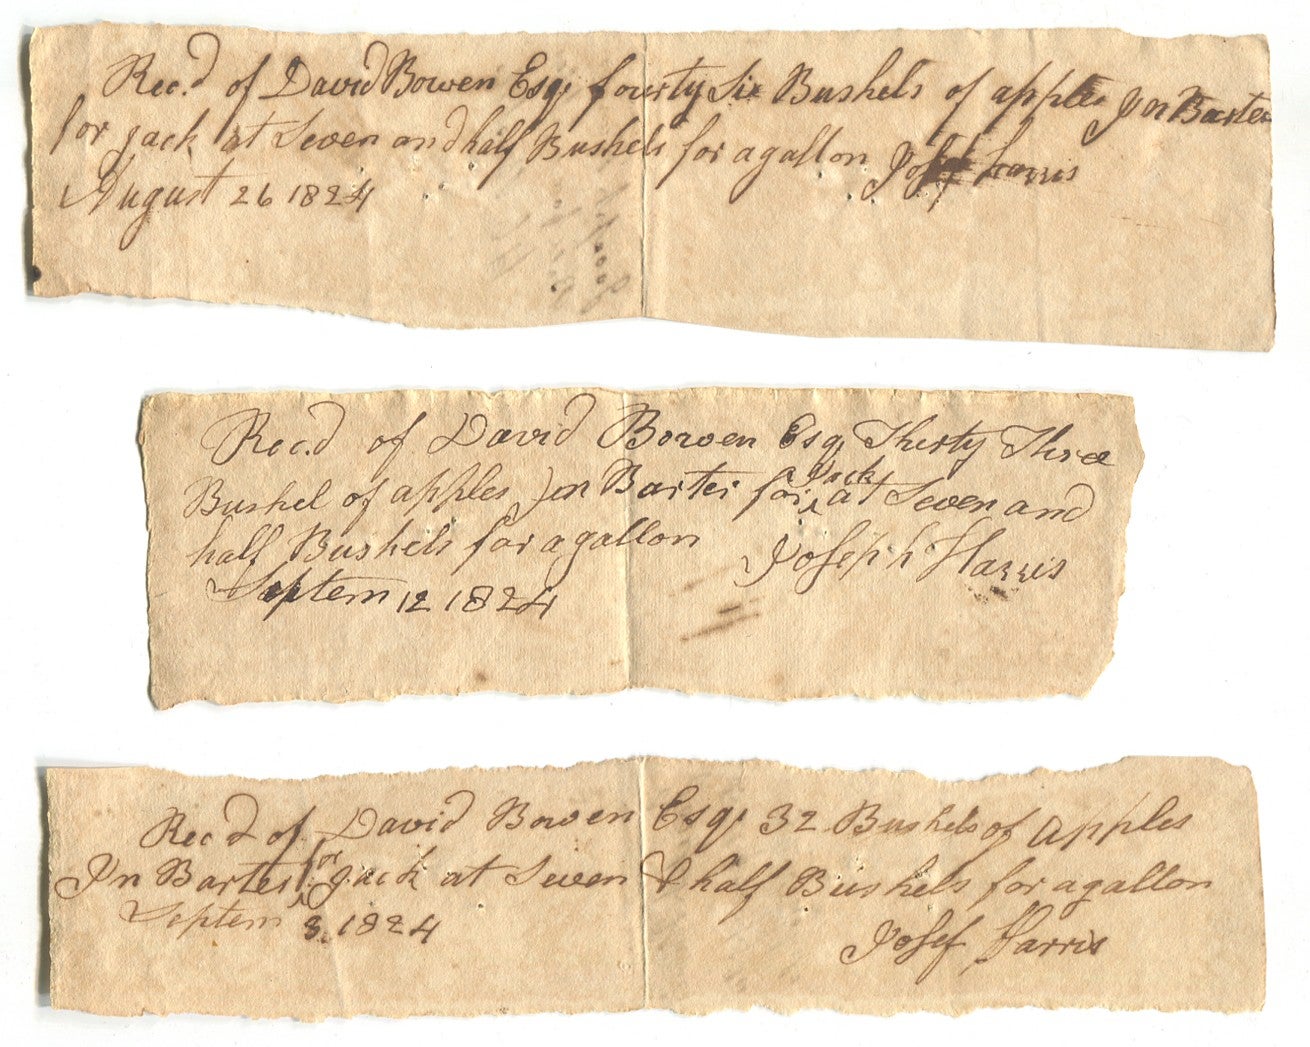 Rec.d of David Bowen Esq. fourty Six Bushels of apples In Barter
for jack at Seven and half Bushels for a gallon Josef Harris
August 26 1824
Rec.d of David Bowen Esq. Thirty Three
Bushel of apples in Barter for a Jack at Seven and
half Bushels for a gallon Joseph Harris
Septem 12 1824
Rec d of David Bowen Esq. 32 Bushels of apples
In Barter for jack at Seven & half Bushels for a gallon
Septem 8. 1824
Josef Harris